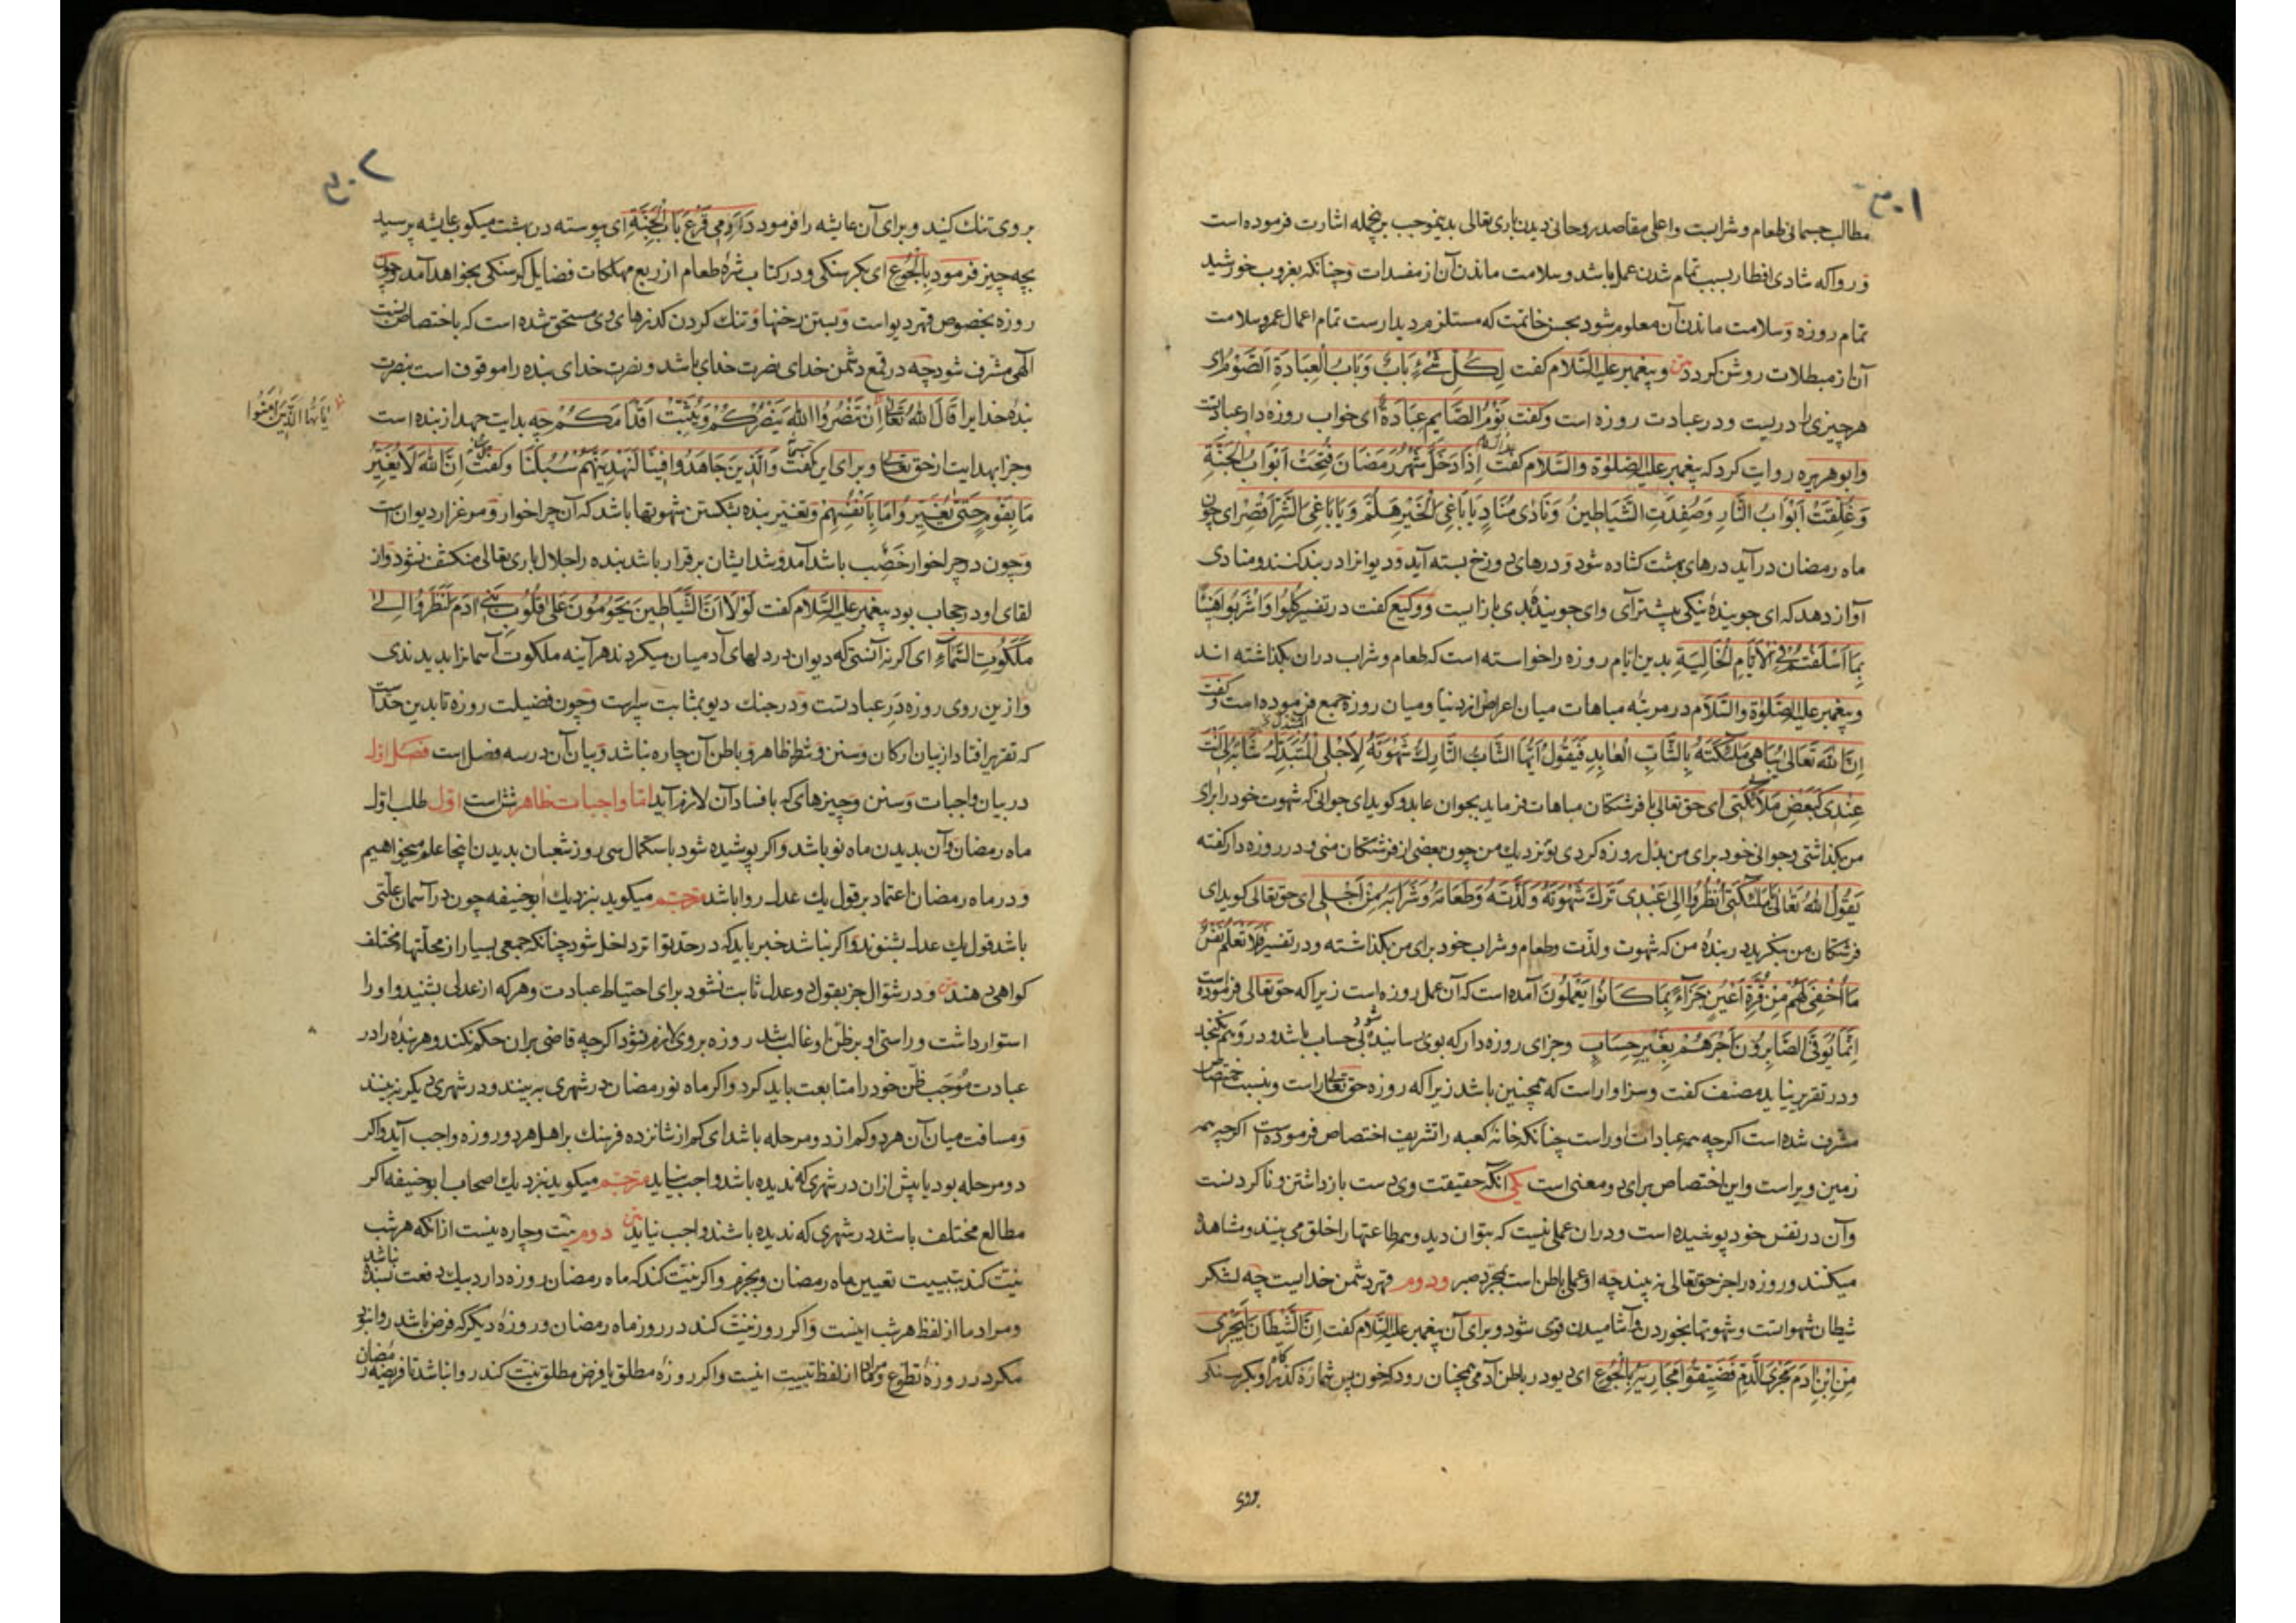 مطالب جسمانی طعام و شرابست و اعلی مقاصد روحانی دیدن باری تعالی بدینموجب برین جمله اشارت فرموده است
و روا که شادی افطار بسبب تمام شدن عمل باشد و سلامت ماندن آن از مفسدات و چنانکه بغروب خورشید
تمام روزه و سلامت ماندن آن معلوم شود بحسن خاتمت که مستلزم دیدارست تمام اعمال عمر و سلامت
آن از مبطلات روشن کردد و پیغمبر علیه السلام کفت لِكُلِّ شَيْءٍ بَابٌ وَبَابُ الْعِبَادَةِ الصَّوْمُ ای
هر چیزی را دریست و در عبادت روزه است و کفت نَوْمُ الصَّايِمِ عِبَادَةٌ ای خواب روزه دار عبادتست
و ابو هریره روایت کرد که پیغمبر علیه الصلوة والسلام کفت اِذَا دَخَلَ شَهْرُ رَمَضَانَ فُتِحَتْ اَبْوَابُ الْجَنَّةِ
وَغُلِّقَتْ اَبْوَابُ النَّارِ وَصُفِّدَتِ الشَّيَاطِينُ وَنَادَى مُنَادٍ يَا بَاغِيَ الْخَيْرِ هَلُمَّ وَيَا بَاغِيَ الشَّرِّ اَقْصِرْ ای چون
ماه رمضان درآید درهای بهشت کشاده شود و درهای دوزخ بسته آید و دیوانرا در بند کنند و منادی
آواز دهد که ای جویندۀ نیکی پیشتر آی و ای جویندۀ بدی باز ایست و وکیع کفت در تفسیر كُلُوا وَاشْرَبُوا هَنِيئًا
بِمَا اَسْلَفْتُمْ فِي الْاَيَّامِ الْخَالِيَةِ بدین ایام روزه را خواسته است که طعام و شراب دران بکذاشته اند
و پیغمبر علیه الصلوة والسلام در مرتبۀ مباهات میان اعراض از دنیا و میان روزه جمع فرموده است و کفت
اِنَّ اللهَ تَعَالَى يُبَاهِي مَلٰئِكَتَهُ بِالشَّابِّ الْعَابِدِ فَيَقُولُ اَيُّهَا الشَّابُّ التَّارِكُ شَهْوَتَهُ لِاَجْلِي الْمُتَبَذِّلُ شَبَابَهُ لِي اَنْتَ
عِنْدِي كَبَعْضِ مَلَائِكَتِي ای حق تعالی با فرشتکان مباهات فرماید بجوان عابد و کوید ای جوانی که شهوت خود را برای
من بکذاشتی و جوانی خود برای من بذل کردی تو نزدیك من چون بعضی از فرشتکان منی و در روزه دار کفته
يَقُولُ اللهُ تَعَالَى يَا مَلٰئِكَتِي اُنْظُرُوا اِلَى عَبْدِي تَرَكَ شَهْوَتَهُ وَلَذَّتَهُ وَطَعَامَهُ وَشَرَابَهُ مِنْ اَجْلِي ای حق تعالی کوید ای
فرشتکان من بنکرید در بندۀ من که شهوت و لذت و طعام و شراب خود برای من بکذاشته و در تفسیر فَلَا تَعْلَمُ نَفْسٌ
مَا اُخْفِيَ لَهُمْ مِنْ قُرَّةِ اَعْيُنٍ جَزَآءً بِمَا كَانُوا يَعْمَلُونَ آمده است که آن عمل روزه است زیرا که حق تعالی فرموده است
اِنَّمَا يُوَفَّى الصَّابِرُونَ اَجْرَهُمْ بِغَيْرِ حِسَابٍ و جزای روزه دار که بوی رسانیده شود بی حساب باشد و در وهم نکنجد
و در تقریر نیاید مصنف کفت و سزاوار است که همچنین باشد زیرا که روزه حق تعالی راست و بنسبت اختصاص
مشرف شده است اکرچه همه عبادات او راست چنانکه خانۀ کعبه را تشریف اختصاص فرموده است اکرچه همه
زمین ویراست و این اختصاص برای دو معنی است یکی آنکه حقیقت وی دست بازداشتن و ناکردنست
و آن در نفس خود پوشیده است و دران عملی نیست که بتوان دید و همه طاعتها را خلق می بینند و مشاهده
میکنند و روزه را جز حق تعالی نه بیند چه او عملی باطن است بمجرد صبر و دوم قهر دشمن خدایست چه لشکر
شیطان شهواتست و شهوتها بخوردن و آشامیدن قوی شود و برای آن پیغمبر علیه السلام کفت اِنَّ الشَّيْطَانَ لَيَجْرِي
مِنِ ابْنِ اٰدَمَ مَجْرَى الدَّمِ فَضَيِّقُوا مَجَارِيَهُ بِالْجُوعِ ای دیو در باطن آدمی همچنان رود که خون پس شما رهکذر او بکرسنکی
بروی
بر وی تنك کنید و برای آن عایشه را فرمود دَاوِمِي قَرْعَ بَابِ الْجَنَّةِ ای پیوسته در بهشت میکوب عایشه پرسید
بچه چیز فرمود بِالْجُوعِ ای بکرسنکی و در کتاب شره طعام از ربع مهلکات فضایل کرسنکی بخواهد آمد چون
روزه بخصوص قهر دیو است و بستن رخنها و تنك کردن کذرهای وی مستحق شده است که باختصاص نسبت
آلهی مشرف شود چه در قمع دشمن خدای نصرت خدای باشد و نصرت خدای بنده را موقوف است بنصرت
بنده خدایرا قَالَ اللهُ تَعَالَى اِنْ تَنْصُرُوا اللهَ يَنْصُرْكُمْ وَيُثَبِّتْ اَقْدَامَكُمْ چه بدایت جهد از بنده است
يَا اَيُّهَا الَّذِينَ اٰمَنُوا
و جزا بهدایت از حق تعالی و برای این کفت وَالَّذِينَ جَاهَدُوا فِينَا لَنَهْدِيَنَّهُمْ سُبُلَنَا و کفت اِنَّ اللهَ لَا يُغَيِّرُ
مَا بِقَوْمٍ حَتَّى يُغَيِّرُوا مَا بِاَنْفُسِهِمْ و تغییر بنده بشکستن شهوتها باشد که آن چراخوار و مرغزار دیوان است
و چون در چراخوار خصب باشد آمد و شد ایشان برقرار باشد بنده را جلال باری تعالی منکشف نشود و از
لقای او در حجاب بود پیغمبر علیه السلام کفت لَوْلَا اَنَّ الشَّيَاطِينَ يَحُومُونَ عَلَى قُلُوبِ بَنِي اٰدَمَ لَنَظَرُوا اِلَى
مَلَكُوتِ السَّمَآءِ ای اکر نه آنستی که دیوان در دلهای آدمیان میکردند هرآینه ملکوت آسمانرا بدیدندی
و ازین روی روزه در عبادتست و در جنك دیو بمثابت سپرست و چون فضیلت روزه تا بدین حد است
که تقریر افتاد از بیان ارکان و سنن و شرط ظاهر و باطن آن چاره نباشد و بیان آن در سه فصل است فصل اول
در بیان واجبات و سنن و چیزهای که بافساد آن لازم آید اما واجبات ظاهر شش است اول طلب اول
ماه رمضان و آن بدیدن ماه نو باشد و اکر پوشیده شود باستکمال سی روز شعبان بدیدن اینجا علم میخواهیم
و در ماه رمضان اعتماد بر قول یك عدل روا باشد مترجم میکوید بنزدیك ابو حنیفه چون در آسمان علتی
باشد قول یك عدل بشنوند و اکر نباشد خبر باید که در حد تواتر داخل شود چنانکه جمعی بسیار از محلتهای مختلف
کواهی دهند و در شوال جز بقول دو عدل ثابت نشود برای احتیاط عبادت و هر که از عدلی بشنید و او را
استوار داشت و راستی او بر ظن او غالب شد روزه بر وی لازم شود اکرچه قاضی بران حکم نکند و هر بنده را در
عبادت موجب ظن خود را متابعت باید کرد و اکر ماه نو رمضان در شهری به بینند و در شهری دیکر نه بینند
و مسافت میان آن هر دو کم از دو مرحله باشد ای کم از شانزده فرسنك بر اهل هر دو روزه واجب آید و اکر
دو مرحله بود یا بیش ازان در شهری که ندیده باشد واجب نیاید مترجم میکوید بنزدیك اصحاب ابو حنیفه اکر
مطالع مختلف باشد در شهری که ندیده باشند واجب نیاید دوم نیت و چاره نیست از آنکه هر شب
نیت کند بتبییت تعیین ماه رمضان و بجزم و اکر نیت کند که ماه رمضان روزه دارد بیك دفعت بسنده نباشد
و مراد ما از لفظ هر شب اینست و اکر روز نیت کند در روز ماه رمضان و روزۀ دیکر که فرض باشد روا نبود
مکر در روزۀ تطوع و مراد ما از لفظ تبییت اینست و اکر روزۀ مطلق یا فرض مطلق نیت کند روا نباشد تا فریضۀ رمضان